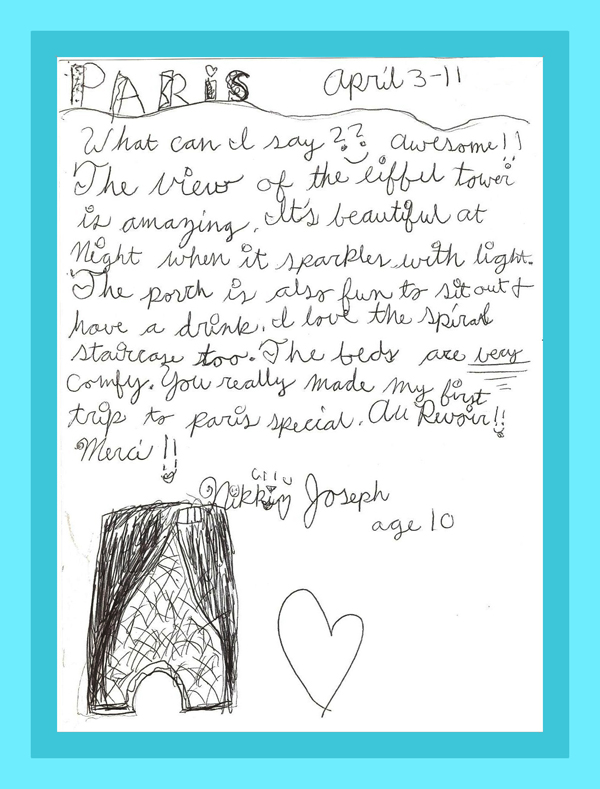 PARIS April 3-11
What can I say?? Awesome!!
The view of the eiffel tower
is amazing. It's beautiful at
Night when it sparkles with light.
The porch is also fun to sit out &
have a drink. I love the spiral
staircase too. The beds are very
Comfy. You really made my first
trip to paris special. Au Revoir!!
Merci!!
Nikkin Joseph
age 10